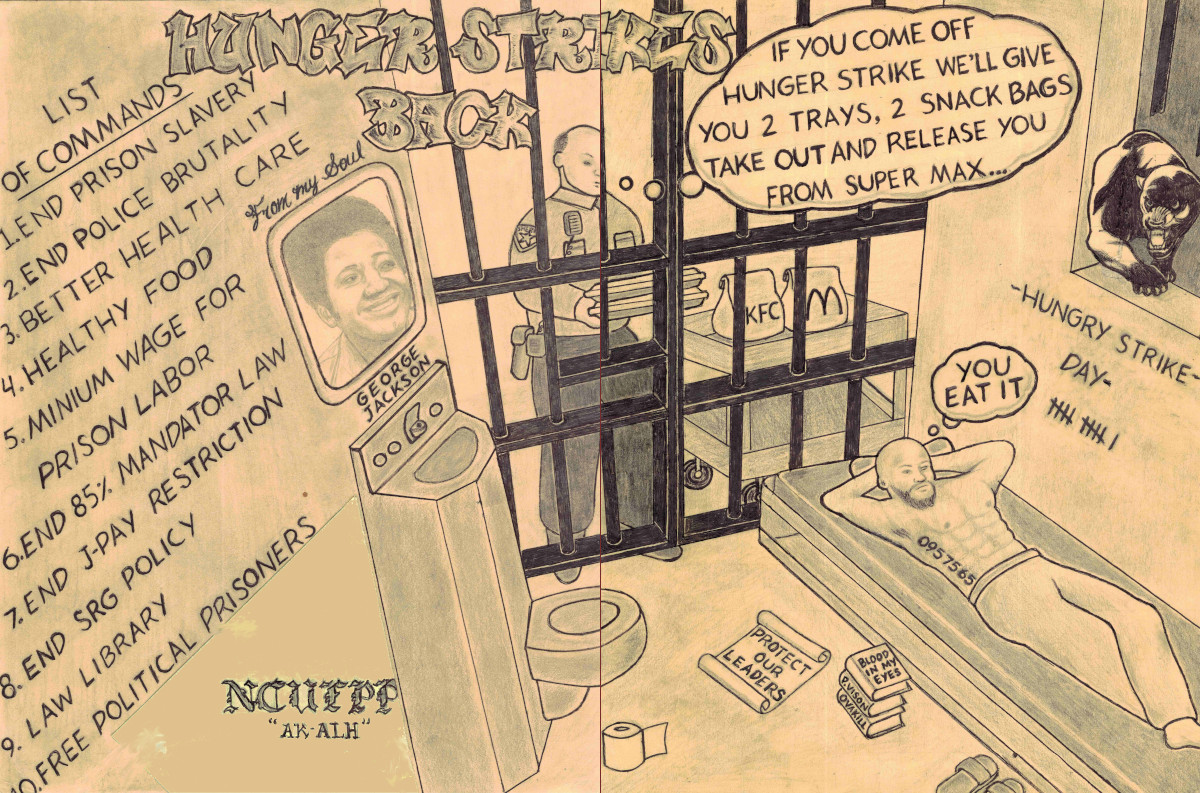 HUNGER STRIKES
BACK
LIST
OF COMMANDS
1. END PRISON SLAVERY
2. END POLICE BRUTALITY
3. BETTER HEALTH CARE
4. HEALTHY FOOD
5. MINIUM WAGE FOR
PRISON LABOR
6. END 85% MANDATOR LAW
7. END J-PAY RESTRICTION
8. END SRG POLICY
9. LAW LIBRARY
10. FREE POLITICAL PRISONERS
From my Soul
GEORGE
JACKSON
IF YOU COME OFF
HUNGER STRIKE WE'LL GIVE
YOU 2 TRAYS, 2 SNACK BAGS
TAKE OUT AND RELEASE YOU
FROM SUPER MAX...
KFC
M
-HUNGRY STRIKE-
DAY-
YOU
EAT IT
0957565
PROTECT
OUR
LEADERS
BLOOD
IN MY
EYES
"AK-ALH"